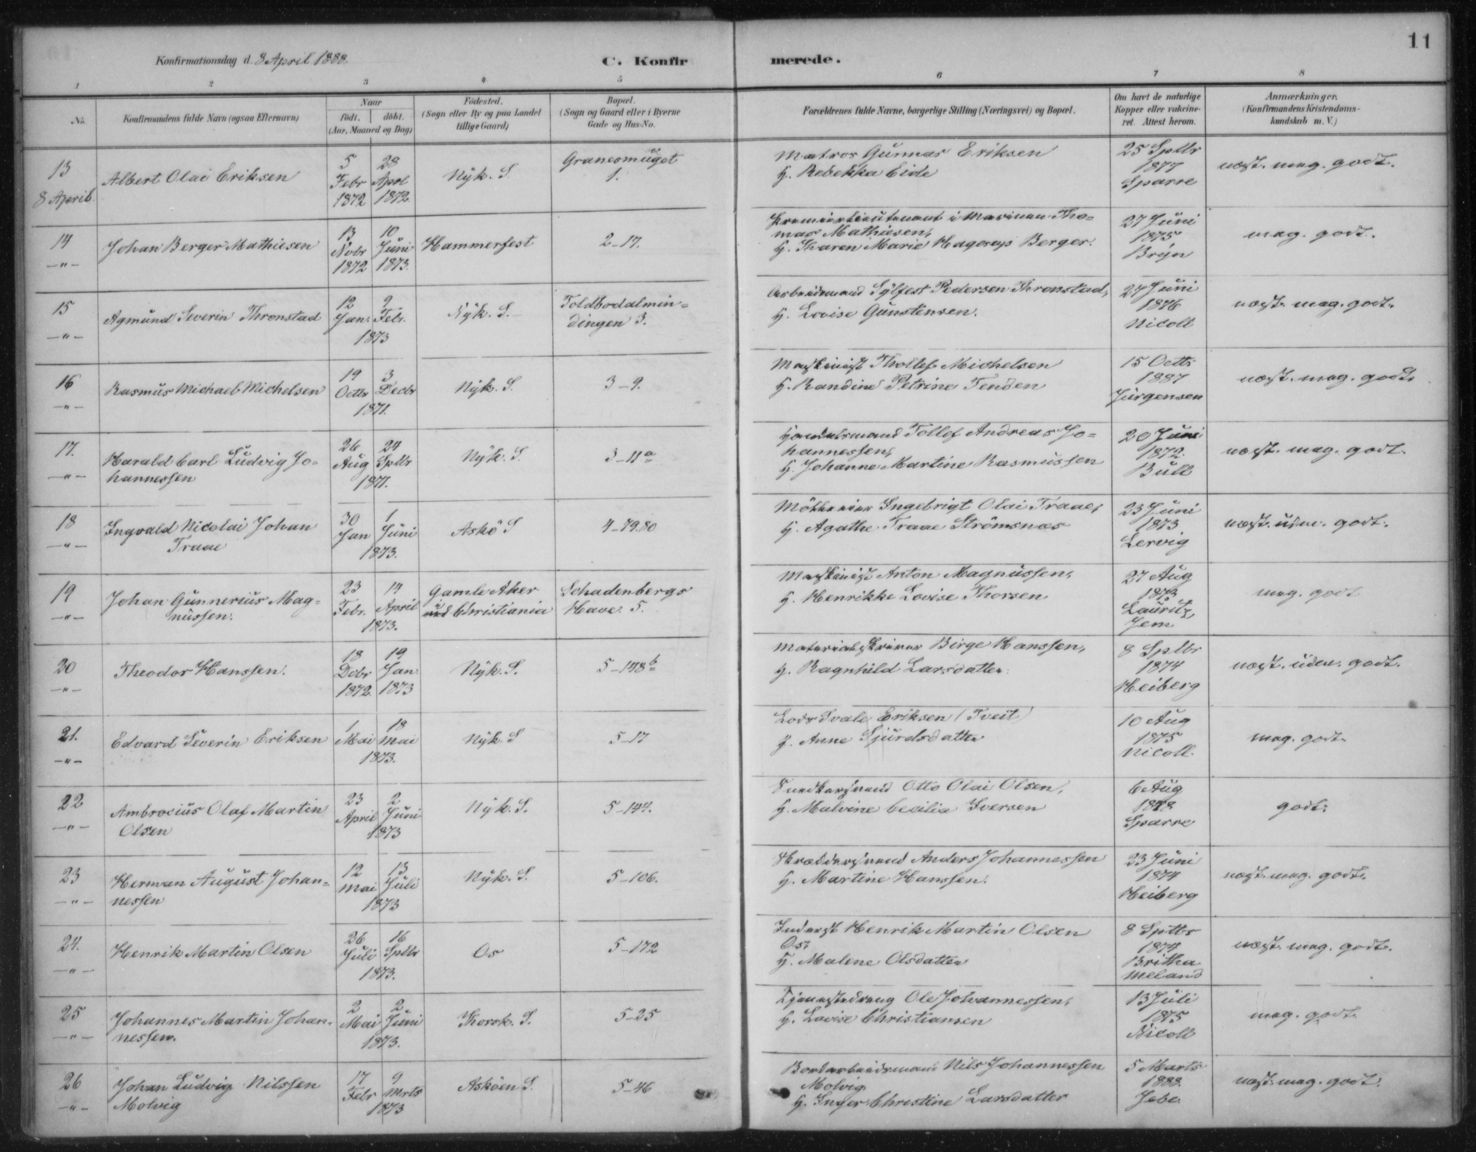 11
Konfirmationsdag d. 8 April 1888.
C. Konfirmerede.
1 2 3 4 5 6 7 8
No.
Konfirmandens fulde Navn (ogsaa Efternavn)
Naar
født. døbt.
(Aar, Maaned og Dag)
Fødested.
(Sogn eller By og paa Landet
tillige Gaard)
Bopæl.
(Sogn og Gaard eller i Byerne
Gade og Hus-No.
Forældrenes fulde Navne, borgerlige Stilling (Næringsvei) og Bopæl.
Om havt de naturlige
Kopper eller vakcine-
ret. Attest herom.
Anmærkninger.
(Konfirmandens Kristendoms-
kundskab m. V.)
13
8 April
Albert Olai Eriksen
5 Febr 1872
28 Aprl 1872
Nÿk. S.
1.
Matros Gunnar Eriksen
H. Rebekka Eide
25 Sptbr
1877
Sparre
næst. mag. godt.
14
-"-
Johan Berger Mathiesen
13 Nobr 1872
10 Juni 1873
Hammerfest
2-17.
Premierlieutenant i Marinen Tho-
mas Mathiesen,
H. Karen Marie Berger.
27 Juni
1875
mag. godt.
15
-"-
Agmund Severin Thronstad
12 Jan. 9 Febr.
1873
Nÿk. S.
Toldbodalmin-
dingen 3.
Arbeidsmand Sylfest Pedersen Thronstad,
H. Lovise Gunstensen.
27 Juni
1876
Nicoll
næst. mag. godt.
16
-"-
Rasmus Michael Michelsen
19 Octbr 3 Decbr
1871.
Nÿk. S.
3-9.
Maskinist Thollef Michelsen
H. Randine Petrine Tenden
15 Octb.
1887
Jürgensen
næst. mag. godt.
17.
-"-
Harald Carl Ludvig Jo-
hannessen
26 Aug 24 Sptbr
1871.
Nÿk. S.
3-11a
Handelsmand Tollef Andreas Jo-
hannessen,
H. Johanne Martine Rasmussen
20 Juni
1872
Bull
næst. mag. godt.
18
-"-
Ingvald Nicolai Johan
Traae
30 Jan 1 Juni
1873.
Askö S
4-79.80
Ingebrigt Olai Traae,
H. Agathe Traae Strömsnæs
23 Juni
1873
Lervig
næst. uden. godt.
19
-"-
Johan Gunnerius Mag-
nussen.
23 Febr. 14 April
1873.
Gamle Aker
ved Christiania
Schadenbergs
Have 5.
Maskinist Anton Magnussen,
H. Henrikke Lovise Thorsen
27 Aug
1873
Lauritz
Jem
mag. godt
20
-"-
Theodor Hanssen.
18 Debr 1872
19 Jan 1873
Nÿk. S.
5-148b
Materialskriver Birge Hanssen,
H. Ragnhild Larsdatter.
8 Sptbr
1874
Heiberg
næst. uden. godt.
21.
-"-
Edvard Severin Eriksen
1 Mai 18 Mai
1873.
Nÿk. S
5-17
Lods Eriksen (Tveit)
H. Anne Sjurdsdatter
10 Aug
1875
Nicoll.
mag. godt.
22
-"-
Ambrocius Olaf Martin
Olsen
23 April 2 Juni
1873
Nÿk. S.
5-144.
Snedkersvend Otto Olai Olsen,
H. Malvine Cecilia Iversen
6 Aug
1878
Sparre
godt.
23
-"-
Herman August Johan-
nessen
12 Mai 13 Juli
1873
Nÿk. S.
5-106.
Skræddersvend Anders Johannessen
H. Martine Hanssen.
23 Juni
1874
Heiberg
næst. mag. godt.
24.
-"-
Henrik Martin Olsen
26 Juli 16 Sptbr
1873.
Os
5-172
Inderst Henrik Martin Olsen
Os,
H. Malene Olsdatter
8 Sptbr
1874
Britha
Meland
næst. mag. godt.
25
-"-
Johannes Martin Johan-
nessen.
2 Mai 2 Juni
1873.
Korsk. S.
5-25
Tjenestedreng Ole Johannessen,
H. Lovise Christiansen
13 Juli
1875
Nicoll
mag. godt.
26
-"-
Johan Ludvig Nilssen
Molvig
17 Febr 9 Mrts
1873
Askøen S.
5-46
Nils Johannessen
Molvig
H. Inger Christine Larsdatter
5 Marts
1888.
næst. mag. godt.